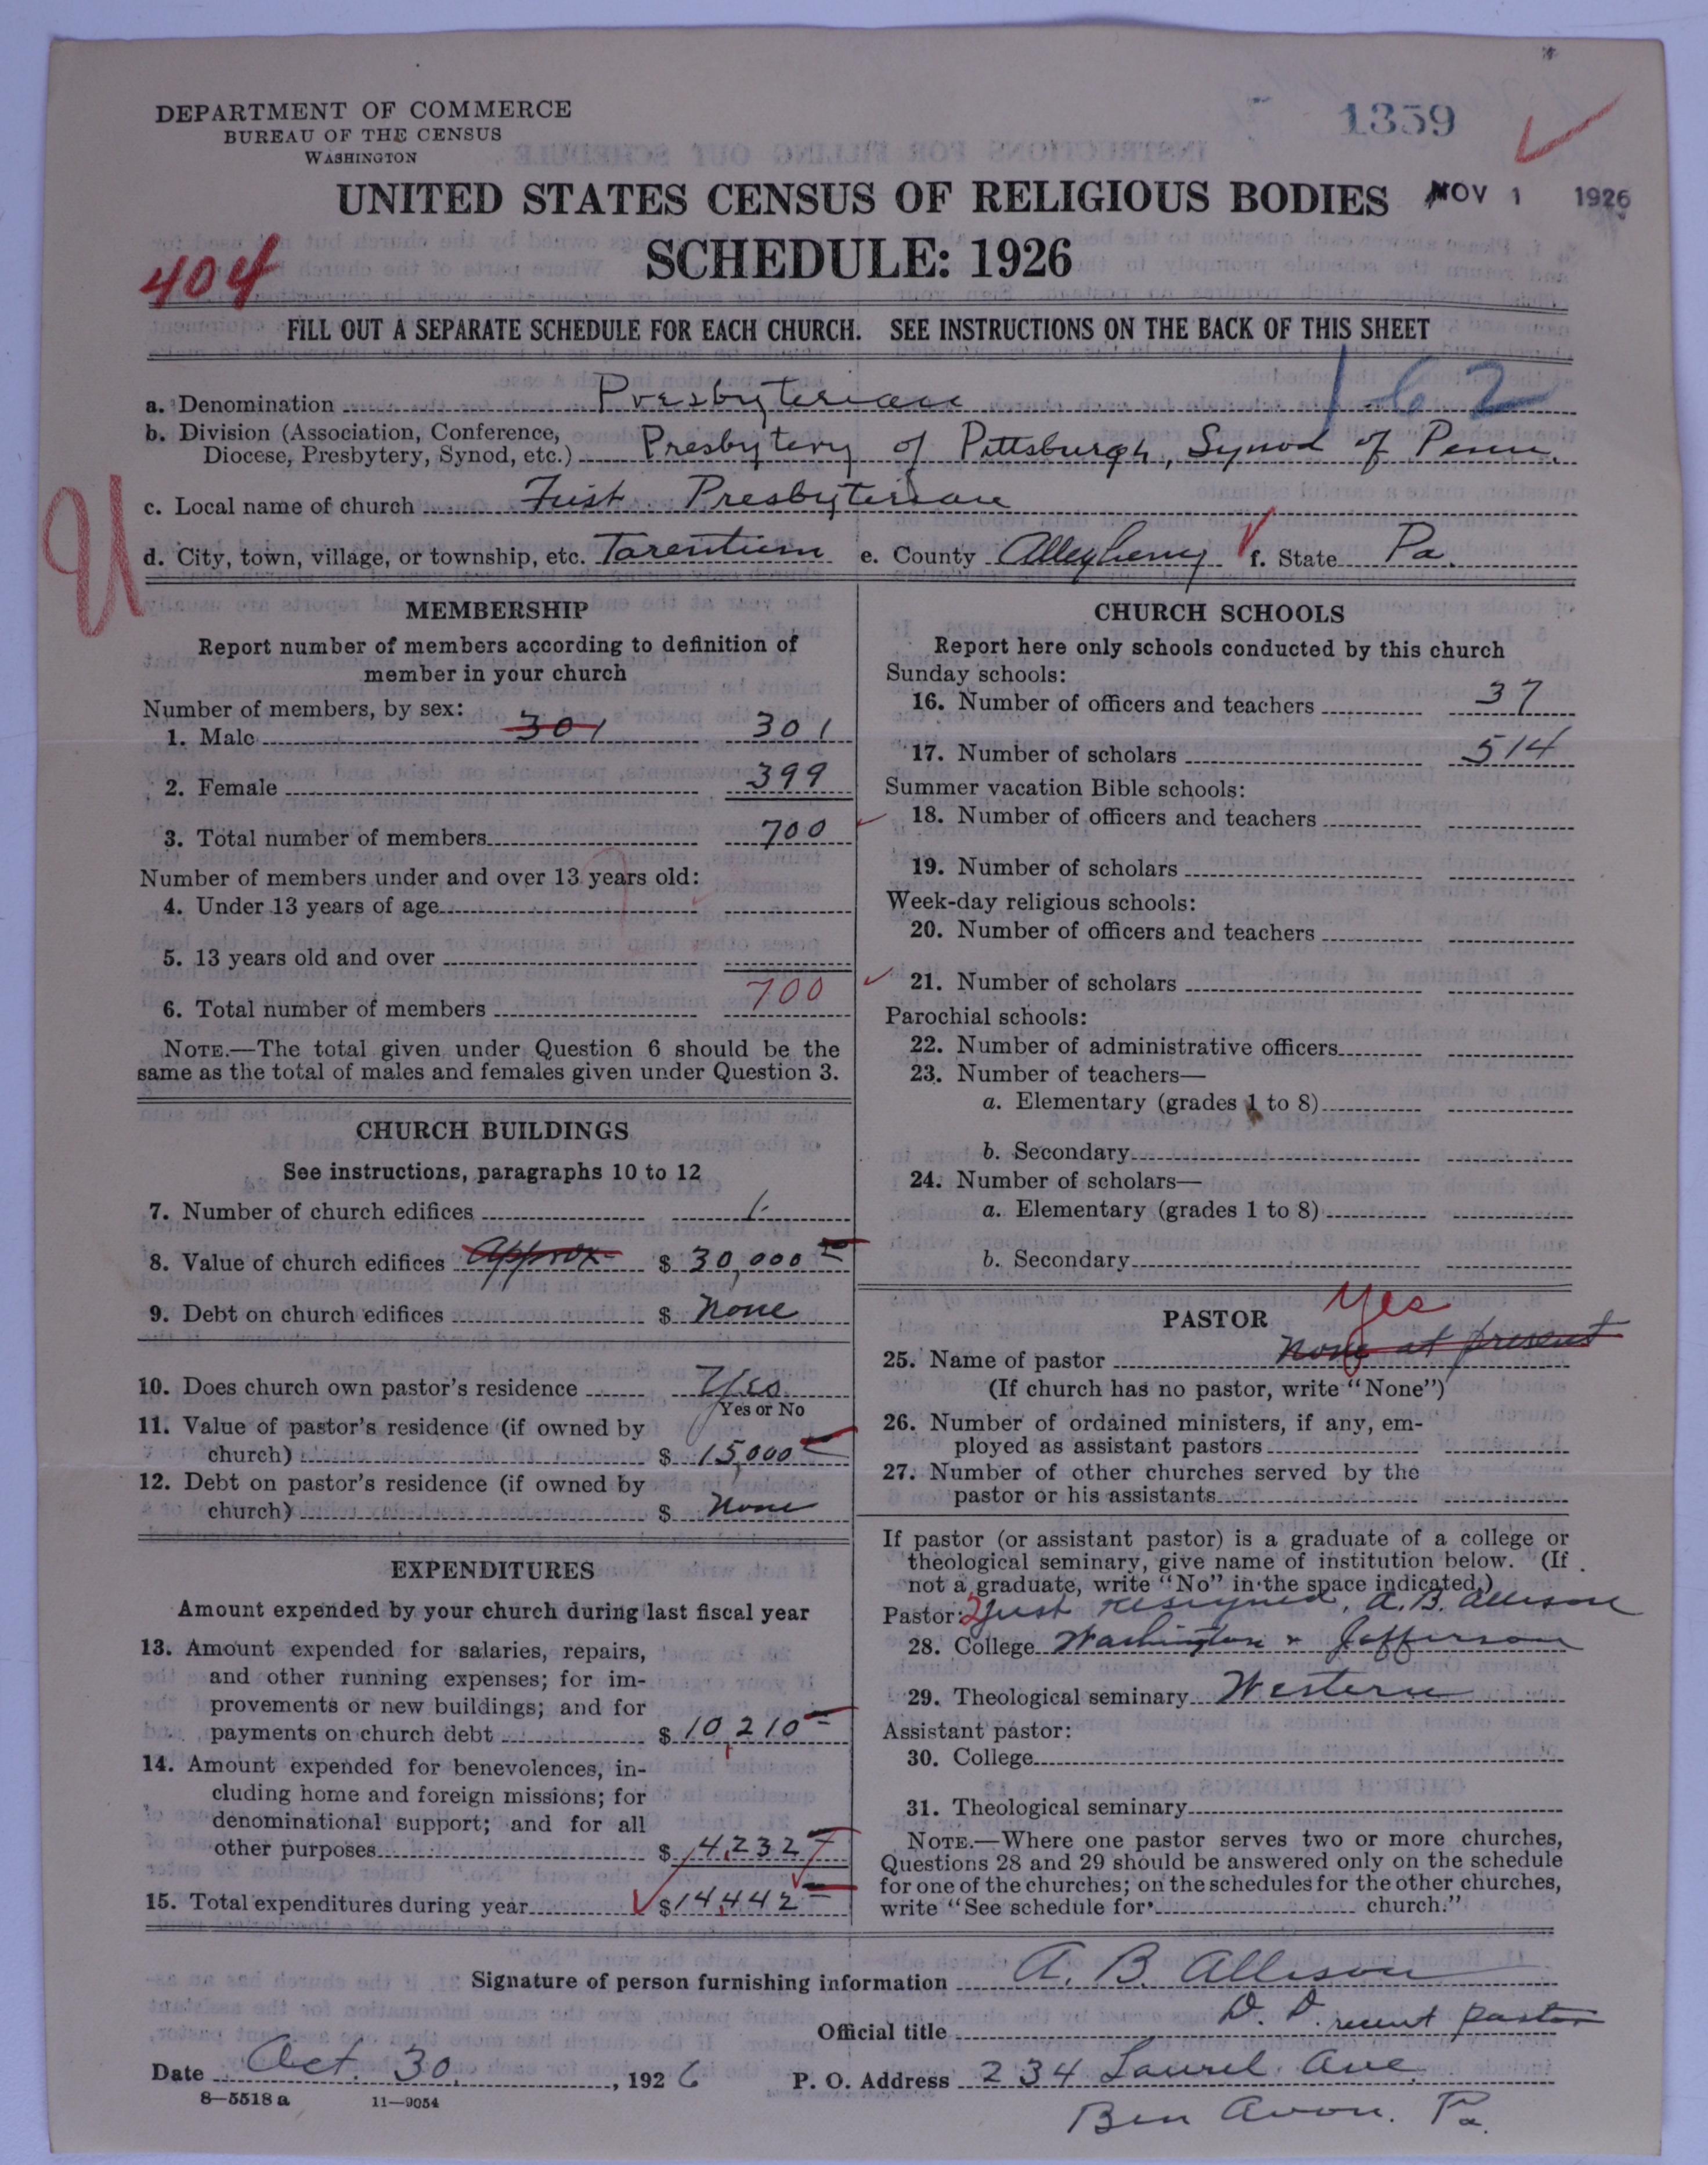 DEPARTMENT OF COMMERCE
BUREAU OF THE CENSUS
WASHINGTON
1359
UNITED STATES CENSUS OF RELIGIOUS BODIES
NOV 1 1926
SCHEDULE: 1926
404
FILL OUT A SEPARATE SCHEDULE FOR EACH CHURCH. SEE INSTRUCTIONS ON THE BACK OF THIS SHEET
1-62
a. Denomination Presbyterian
b. Division (Association, Conference, Diocese, Presbytery, Synod, etc.) Presbytery of Pittsburgh, Synod of Penn.
c. Local name of church First Presbyterian
U
d. City, town, village, or township, etc. Tarentum e. County Allegheny f. State Pa.
MEMBERSHIP
Report number of members according to definition of
member in your church
Number of members, by sex:
1. Male 301 301
2. Female 399
3. Total number of members 700
Number of members under and over 13 years old:
4. Under 13 years of age
5. 13 years old and over
6. Total number of members 700
NOTE.—The total given under Question 6 should be the
same as the total of males and females given under Question 3.
CHURCH BUILDINGS
See instructions, paragraphs 10 to 12
7. Number of church edifices 1
8. Value of church edifices approx $ 30,000
9. Debt on church edifices $ none
10. Does church own pastor's residence Yes
Yes or No
11. Value of pastor's residence (if owned by
church) $ 15,000
12. Debt on pastor's residence (if owned by
church) $ none
EXPENDITURES
Amount expended by your church during last fiscal year
13. Amount expended for salaries, repairs,
and other running expenses; for im-
provements or new buildings; and for
payments on church debt $ 10,210
14. Amount expended for benevolences, in-
cluding home and foreign missions; for
denominational support; and for all
other purposes $ 4,232
15. Total expenditures during year $ 14,442
CHURCH SCHOOLS
Report here only schools conducted by this church
Sunday schools:
16. Number of officers and teachers 37
17. Number of scholars 514
Summer vacation Bible schools:
18. Number of officers and teachers
19. Number of scholars
Week-day religious schools:
20. Number of officers and teachers
21. Number of scholars
Parochial schools:
22. Number of administrative officers
23. Number of teachers—
a. Elementary (grades 1 to 8)
b. Secondary
24. Number of scholars—
a. Elementary (grades 1 to 8)
b. Secondary
PASTOR
Yes
25. Name of pastor None at present
(If church has no pastor, write "None")
26. Number of ordained ministers, if any, em-
ployed as assistant pastors
27. Number of other churches served by the
pastor or his assistants
If pastor (or assistant pastor) is a graduate of a college or
theological seminary, give name of institution below. (If
not a graduate, write "No" in the space indicated.)
Pastor: 2 Just resigned, A. B. Allison
28. College Washington & Jefferson
29. Theological seminary Western
Assistant pastor:
30. College
31. Theological seminary
NOTE.—Where one pastor serves two or more churches,
Questions 28 and 29 should be answered only on the schedule
for one of the churches; on the schedules for the other churches,
write "See schedule for church."
Signature of person furnishing information A. B. Allison
Official title D. D. recent pastor
Date Oct. 30, 1926 P. O. Address 234 Laurel Ave.
8—5518a 11—9054
Ben Avon. Pa.